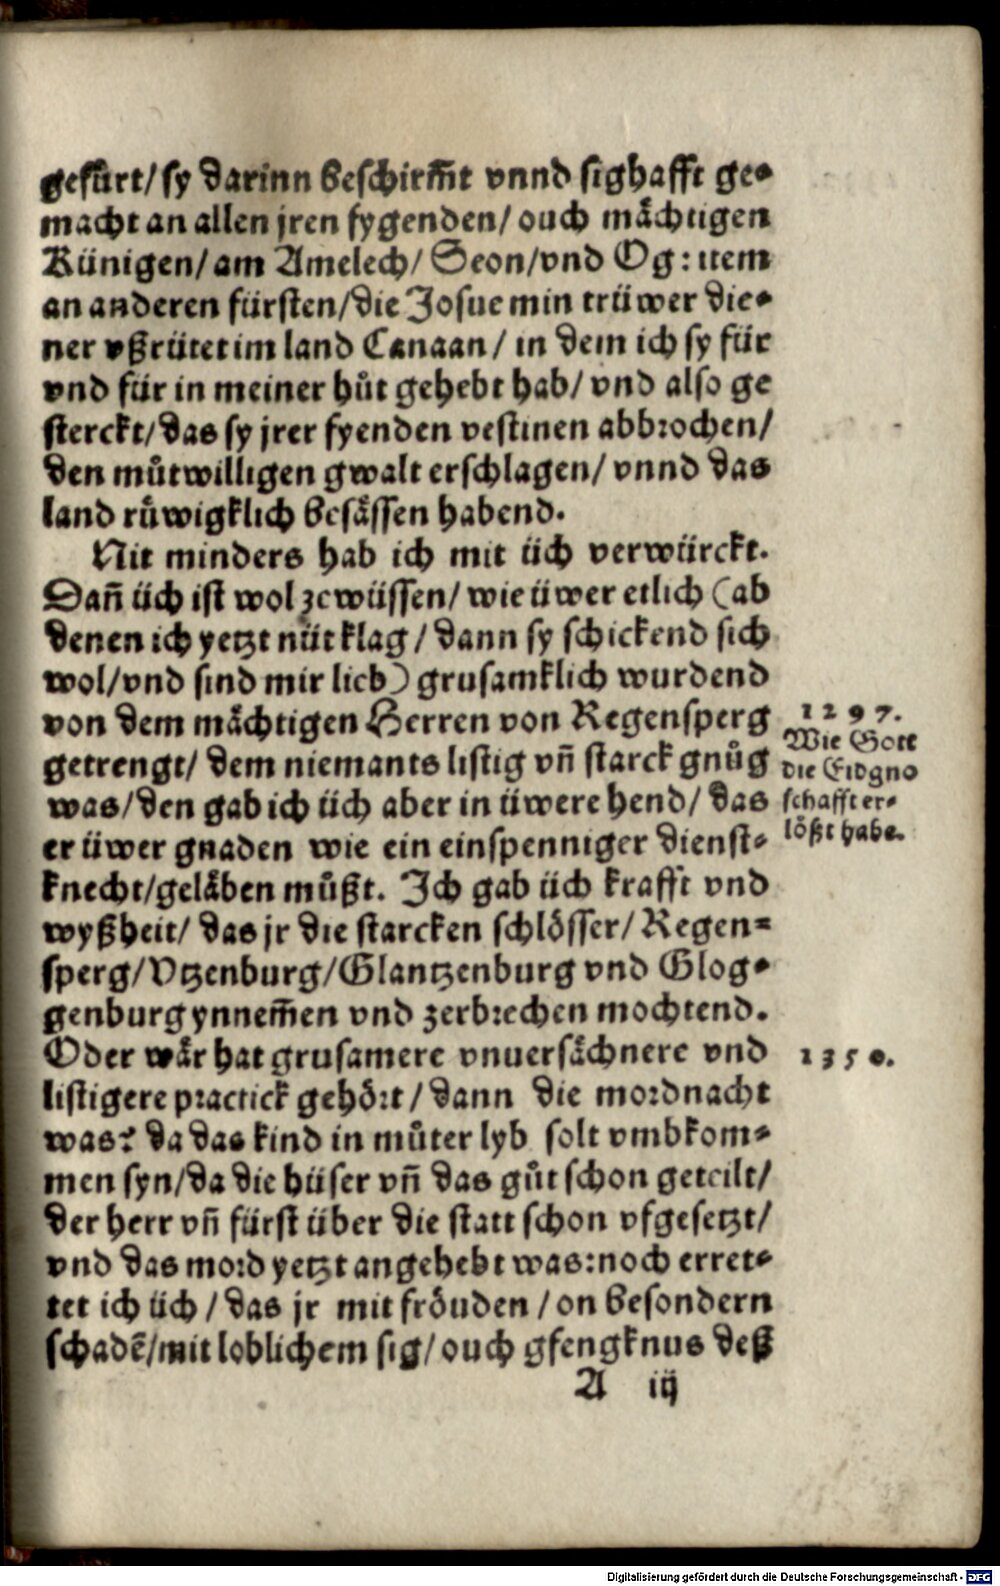 gefürt/ sy darinn beschirm̃t vnnd sighafft ge-
macht an allen jren fygenden/ ouch mächtigen
Künigen/ am Amelech/ Seon/ vnd Og: item
an anderen fürsten/ die Josue min trüwer die-
ner vßrütet im land Canaan/ in dem ich sy für
vnd für in meiner hůt gehebt hab/ vnd also ge
sterckt/ das sy jrer fyenden vestinen abbrochen/
den můtwilligen gwalt erschlagen/ vnnd das
land růwigklich besässen habend.
Nit minders hab ich mit üch verwürckt.
Dañ üch ist wol ze wüssen/ wie üwer etlich (ab
denen ich yetzt nüt klag/ dann sy schickend sich
wol/ vnd sind mir lieb) grusamklich wurdend
von dem mächtigen Herren von Regensperg
getrengt/ dem niemants listig vñ starck gnůg
was/ den gab ich üch aber in üwere hend/ das
er üwer gnaden wie ein einspenniger dienst-
knecht/ geläben můßt. Ich gab üch krafft vnd
wyßheit/ das jr die starcken schlösser/ Regen-
sperg/ Vtzenburg/ Glantzenburg vnd Glog-
genburg ynnem̃en vnd zerbrechen mochtend.
Oder wär hat grusamere vnuersächnere vnd
listigere practick gehört/ dann die mordnacht
was? da das kind in můter lyb solt vmbkom-
men syn/ da die hüser vñ das gůt schon geteilt/
der herr vñ fürst über die statt schon vfgesetzt/
vnd das mord yetzt angehebt was: noch erret-
tet ich üch/ das jr mit fröuden/ on besondern
schadẽ/ mit loblichem sig/ ouch gfengknus deß
A iij
1297.
Wie Gott
die Eidgno
schafft er-
lößt habe.
1350.
Digitalisierung gefördert durch die Deutsche Forschungsgemeinschaft - DFG